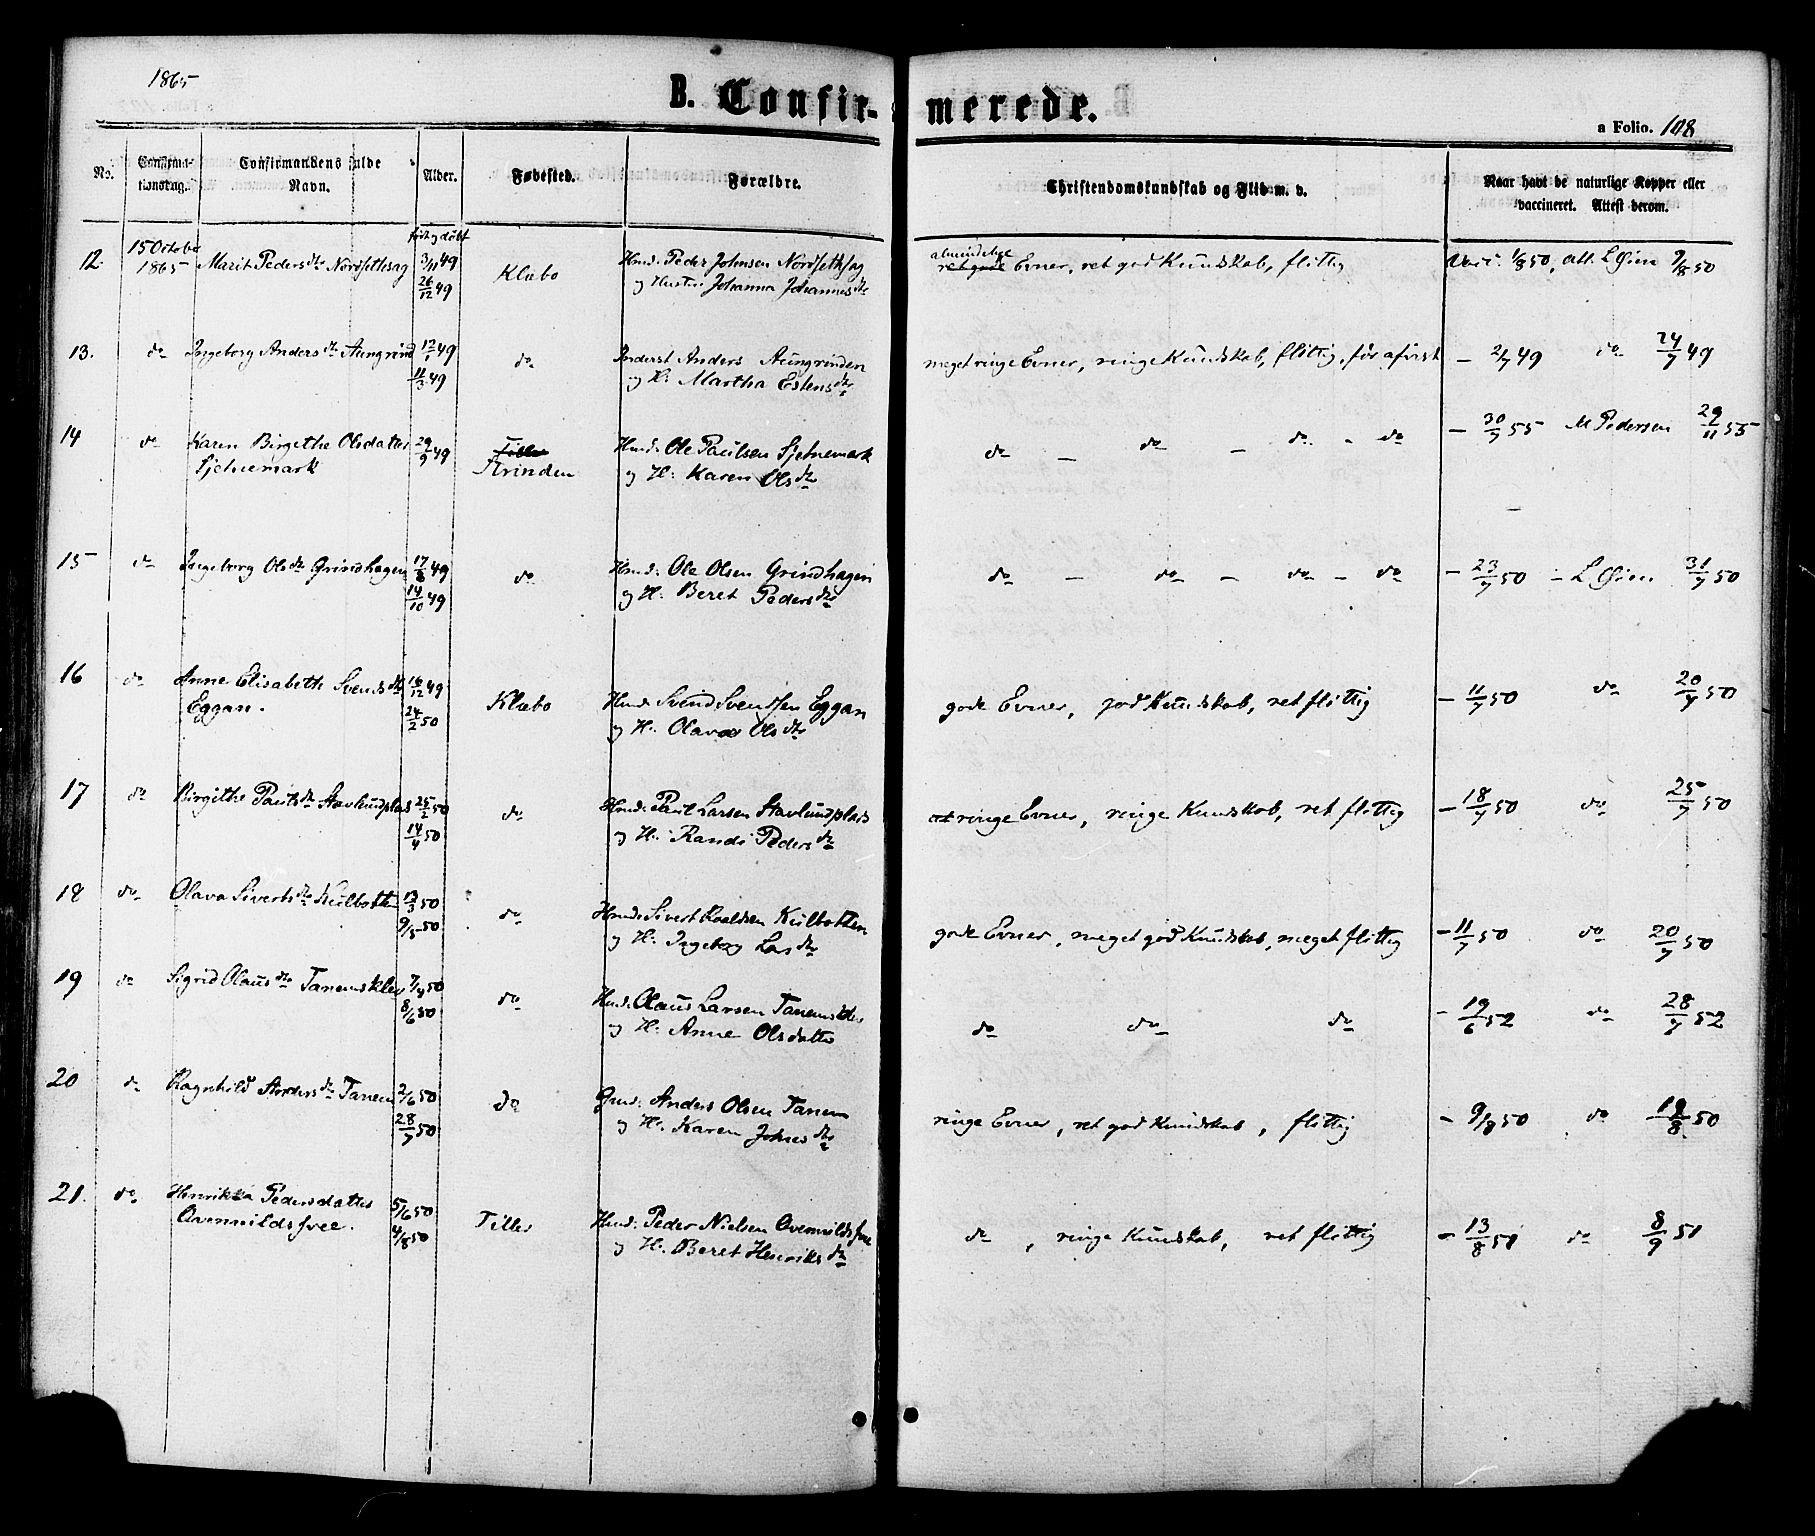 1865
B. Confir- merede.
a Folio. 108
No. Confirma-tionsdag. Confirmandens fulde Navn. Alder. Fødested. Forældre. Christendomskundskab og Flid m. v. Naar havt de naturlige Kopper eller vaccineret. Attest derom.
født og døbt
12. 15 October 1865 Marit Pedersdtr Nordsethsag 3/11 49 26/12 49 Klæbo Huusm: Peder Johnsen Nordsethsag
og Hustru Johanna Johannesdtr
almindelige
ret gode Evner, ret god Kundskab, flittig Vacc. 1/8 50, att. L Øien 9/8 50
13. do Ingeborg Andersdtr 12/1 49 11/3 49 do Inderst Anders
og H: Martha Estensdtr
meget ringe Evner, ringe Kundskab, flittig, før afvist - 2/7 49 do 24/7 49
14 do Karen Birgithe Olsdatter
Sjetnemark 29/9 49 Tiller Strinden Huusm: Ole Paulsen Sjetnemark
og H: Karen Olsdtr
do - do - do - do - 30/7 55 M Pedersen 29/11 55
15 do Ingeborg Olsdtr Grindhagen 17/8 49 14/10 49 do Huusm: Ole Olsen Grindhagen
og H: Beret Pedersdtr
do - do - do - do - 23/7 50 - L Øien 31/7 50
16 do Anne Elisabeth Svendsdtr
Eggan. 16/12 49 24/2 50 Klæbo Huusm: Svend Svendsen Eggan
og H: Olava Olsdtr
gode Evner, god Kundskab, ret flittig - 11/7 50 do 20/7 50
17 do Birgithe Paulsdtr Stavlundplads 25/2 50 14/4 50 do Huusm: Paul Larsen Stavlundplads
og H: Randi Pedersdtr
ringe Evner, ringe Kundskab, ret flittig - 18/7 50 do 25/7 50
18 do Olava Sivertsdtr Kulbotten 13/3 50 9/5 50 do Huusm: Sivert Kulbotten
og H: Ingeborg Larsdtr
gode Evner, meget god Kundskab, meget flittig - 11/7 50 do 20/7 50
19 do Sigrid Olausdtr Tanemsklev 7/4 50 8/6 50 do Huusm: Olaus Larsen
og H: Anne Olsdatter
do do do - 19/6 52 do 28/7 52
20 do Ragnhild Andersdtr Tanem 2/6 50 28/7 50 do Gmd: Anders Olsen Tanem
og H: Karen Johnsdtr
ringe Evner, ret god Kundskab, flittig - 9/8 50 do 19/8 50
21. do Henrikka Pedersdatter 5/6 50 4/8 50 Tiller Huusm: Peder Nielsen
og H: Beret Henriksdtr
do, ringe Kundskab, ret flittig - 13/8 51 do 8/9 51